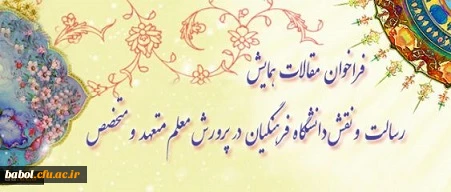 فراخوان مقالات همایش
رسالت و نقش دانشگاه فرهنگیان در پرورش معلم متعهد و متخصص
babol.cfu.ac.ir